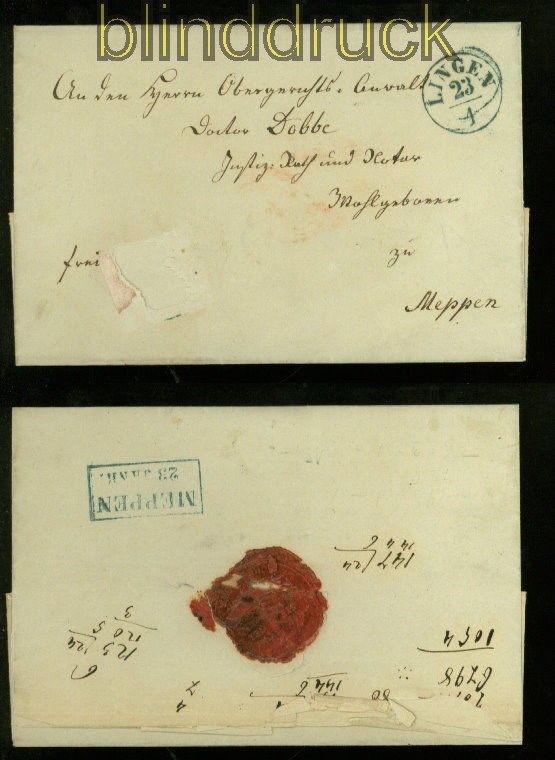 blinddruck
LINGEN
23
1
An den Herrn Obergerichts: Anwalt
Doctor Dobbe
Justiz: Rath und Notar
Wohlgeboren
frei
zu
Meppen
MEPPEN
23 JANR.
147/24
144 6
6
123/24
120 5
3
6798
1054
1446
80